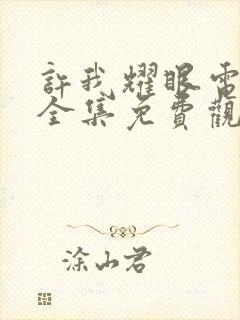 許我耀眼電
全集免費觀
涂山君